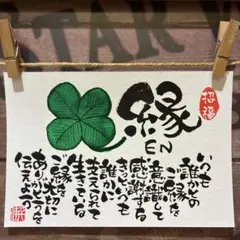 招福
縁
EN
いつも
誰かとの
ご縁を
意識して
感謝する
きっといつも
誰かに
支えられて
生きている
ご縁を大切に
ありがとうを
伝えよう